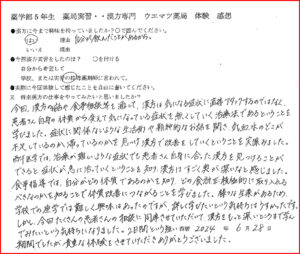 薬学部5年生 薬局実習・・漢方専門 ウエマツ薬局 体験 感想
●漢方に今まで興味を持っていましたか？〇で囲んでください。
はい 理由 自分が飲んだことがあるから。
いいえ 理由
●今回漢方実習をしたのは？ 〇を付ける
自分から希望して
学校、または実習の指導薬剤師に言われて、
●実際に今回体験して感じたことを自由に書いてください。
又 将来漢方の仕事をやってみたいと思いましたか？
今回、漢方相談や食事相談等を通して、漢方は気になる症状に直接アタックするのではなく、
患者さん自身の体質から考えて気になっている症状を無くしていく治療法であるということを
学びました。症状に関係ないような生活面や精神的なお話を聞き、気血水のどこが
不足しているのか、滞っているのかを見つけ漢方で改善をしていくということを実感しました。
西洋医学では、治療が難しいような症状でも患者さん自身に合った漢方を見つけることが
できると症状が良に治っていくことを知り漢方はすごく奥が深いなと感じました。
食事指導では、自分がどの体質であるのかを知り、どの食材を積極的に取り入れる
べきなのかを知ることで体質改善につながることを学びました。様々な生薬があるため、
学校での座学では難しく興味はあったのですが、詳しく学びたいという気持ちはうすかったです。
しかし、今回たくさんの患者さんの相談に同席させていただいて、漢方をもっと深いところまで学ん
でみたいという気持ちになりました。2日間という短い 2024 年 6 月 28 日
期間でしたが貴重な体験をさせていただきありがとうございました。